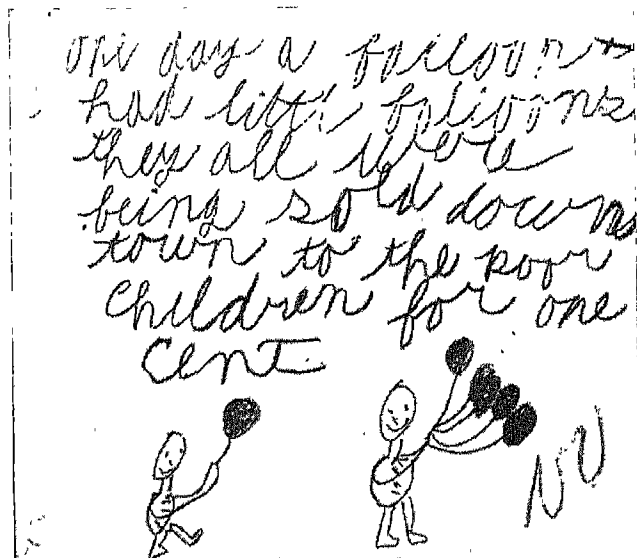 one day a balloon
had little balloons
they all were
being sold down
town to the poor
children for one
cent.
NU